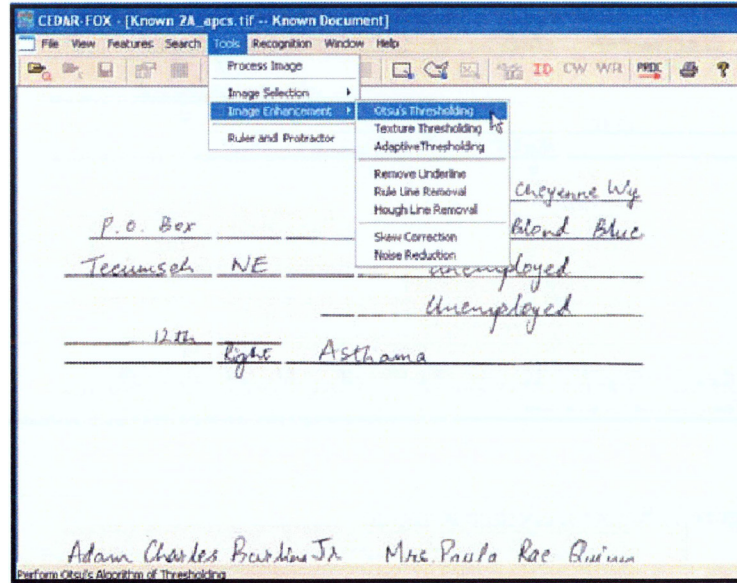 CEDAR-FOX - [Known 2A_apcs.tif -- Known Document]
File View Features Search Tools Recognition Window Help
ID CW WR PROC ?
Process Image
Image Selection
Image Enhancement
Ruler and Protractor
Otsu's Thresholding
Texture Thresholding
AdaptiveThresholding
Remove Underline
Rule Line Removal
Hough Line Removal
Skew Correction
Noise Reduction
Cheyenne Wy
P.O. Box Blond Blue
Tecumseh NE Unemployed
Unemployed
12th
Right Asthama
Adam Charles Jr Mrs. Paula Rae Quinn
Perform Otsu's Algorithm of Thresholding